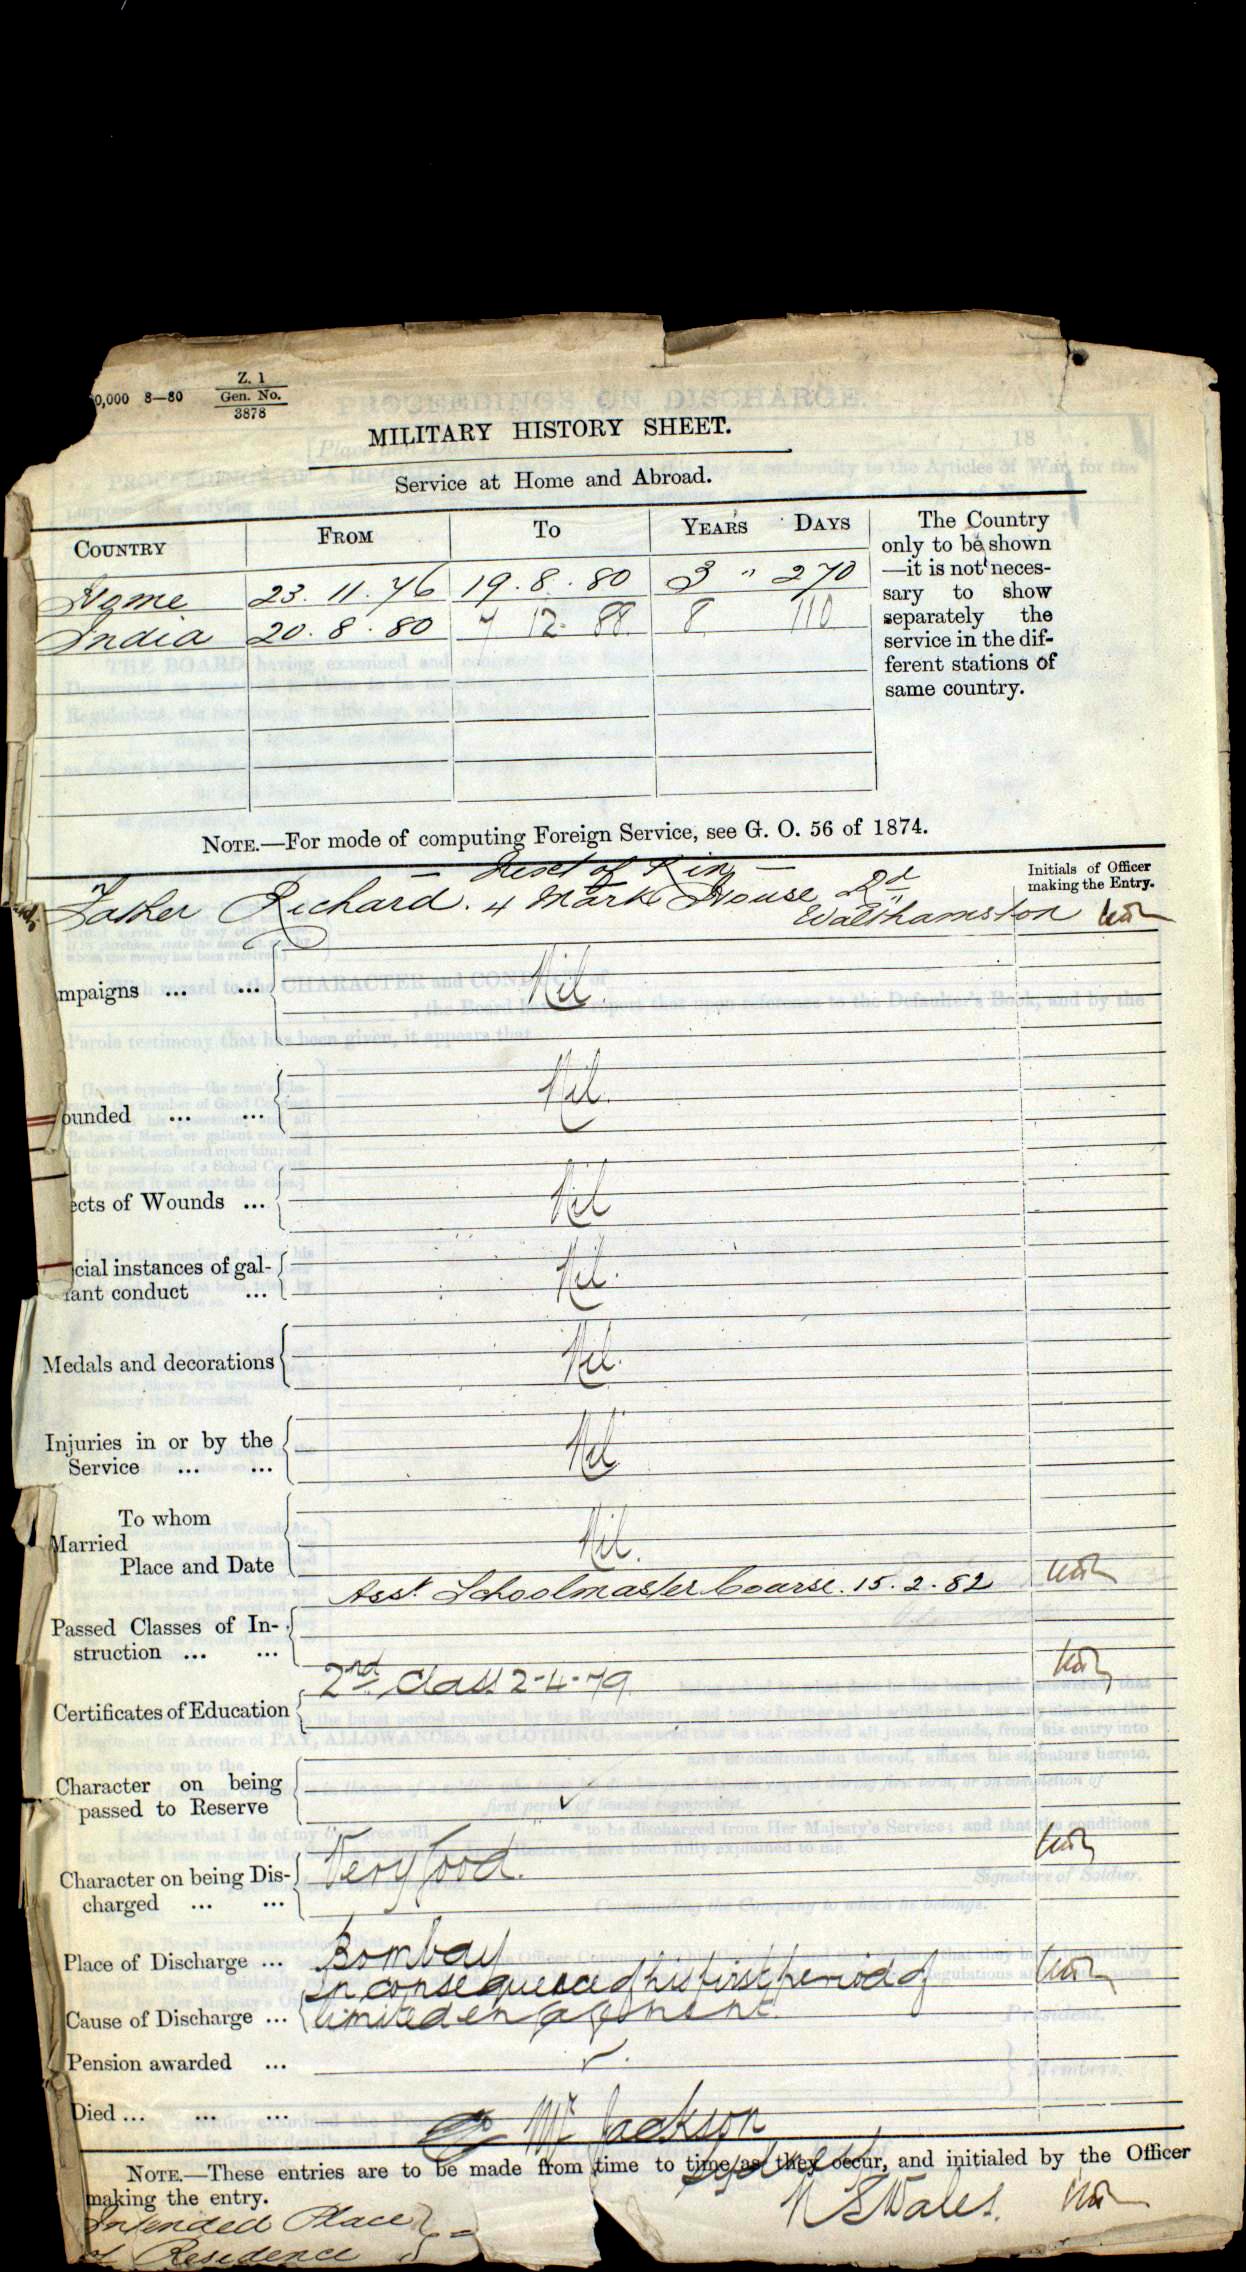 0,000 8—80 Z. 1
Gen. No.
3878
MILITARY HISTORY SHEET.
Service at Home and Abroad.
COUNTRY FROM TO YEARS DAYS
Home 23. 11. 76 19. 8. 80 3 " 270
India 20. 8. 80 7 12. 88 8 110
The Country
only to be shown
—it is not neces-
sary to show
separately the
service in the dif-
ferent stations of
same country.
NOTE.—For mode of computing Foreign Service, see G. O. 56 of 1874.
— Next of Kin —
Initials of Officer
making the Entry.
Father Richard. 4 Mark House Rd
Walthamston
mpaigns ... ... Nil
ounded ... ... Nil.
ects of Wounds ... Nil
cial instances of gal-
lant conduct ... Nil.
Medals and decorations Nil.
Injuries in or by the
Service ... ... Nil
To whom
Married
Place and Date Nil.
Asst. Schoolmaster Course. 15. 2. 82
Passed Classes of In-
struction ... ...
2nd Class 2-4-79
Certificates of Education
Character on being
passed to Reserve ✓
Character on being Dis-
charged ... ... Very Good.
Place of Discharge ... Bombay
In consequence of his first period of
Cause of Discharge ... limited engagement.
Pension awarded ... ✓.
Died ... ... ...
Mr Jackson
Sydney
NOTE.—These entries are to be made from time to time as they occur, and initialed by the Officer
making the entry.
N S Wales.
Intended Place
of Residence =